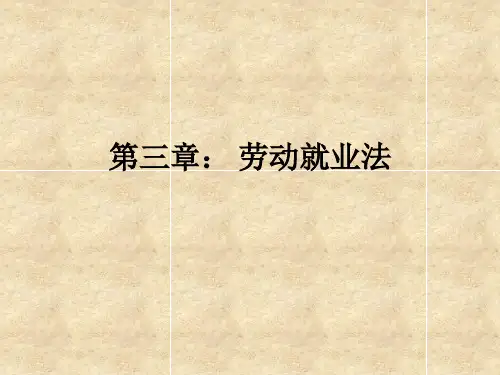 第三章： 劳动就业法